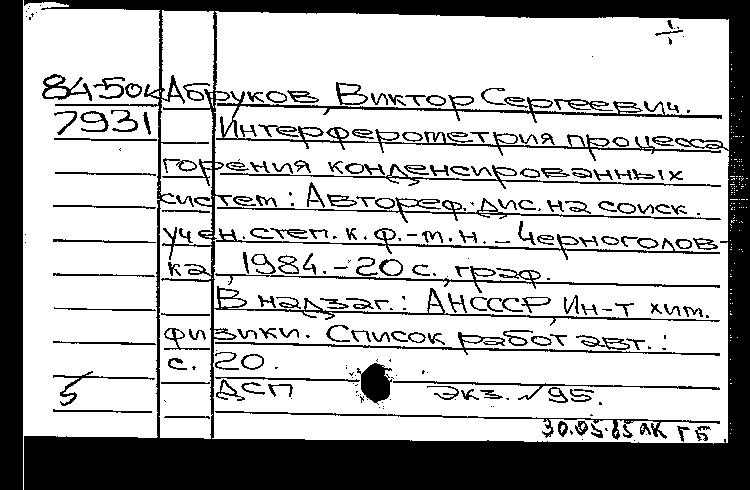 84-50к Абруков, Виктор Сергеевич.
7931 Интерферометрия процесса
горения конденсированных
систем : Автореф. дис. на соиск.
учен. степ. к. ф.-м. н. - Черноголов-
ка, 1984. - 20 с., граф.
В надзаг.: АН СССР, Ин-т хим.
физики. Список работ авт. :
с. 20.
5 ДСП экз. №95.
30.05.85 ГБ